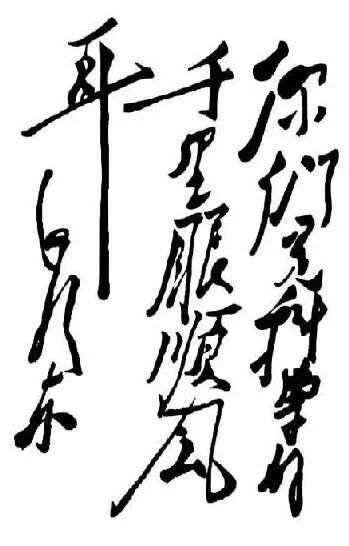 你们是科学的
千里眼順风
耳 毛泽东